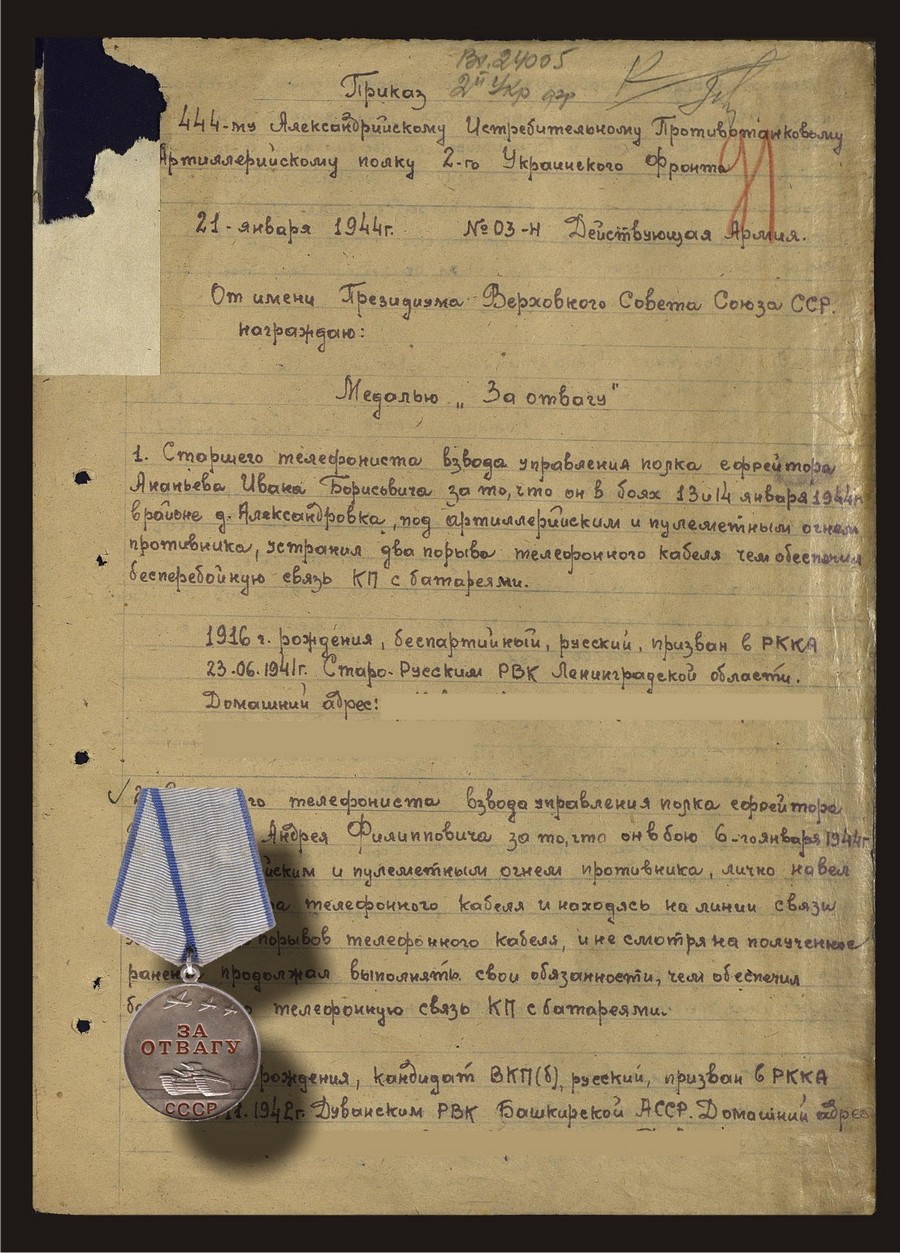 Вх. 24005
2й Укр
Приказ
444-му Александрийскому Истребительному Противотанковому
Артиллерийскому полку 2-го Украинского Фронта
21-января 1944г. №03-н Действующая Армия.
От имени Президиума Верховного Совета Союза ССР.
награждаю:
Медалью „За отвагу"
1. Старшего телефониста взвода управления полка ефрейтора
Ананьева Ивана Борисьвича за то, что он в боях 13 и 14 января 1944г.
в районе д. Александровка, под артиллерийским и пулеметным огнем
противника, устранил два порыва телефонного кабеля чем обеспечил
бесперебойную связь КП с батареями.
1916 г. рождения, беспартийный, русский, призван в РККА
23.06.1941г. Старо-Русским РВК Ленинградской области.
Домашний адрес:
телефониста взвода управления полка ефрейтора
Андрея Филипповича за то, что он в бою 6-го января 1944г
и пулеметным огнем противника, лично навел
телефонного кабеля и находясь на линии связи
порывов телефонного кабеля, и не смотря на полученное
продолжал выполнять свои обязанности, чем обеспечил
телефонную связь КП с батареями.
рождения, кандидат ВКП(б), русский, призван в РККА
1942г. Дуванским РВК Башкирской АССР. Домашний адрес
ЗА
ОТВАГУ
СССР